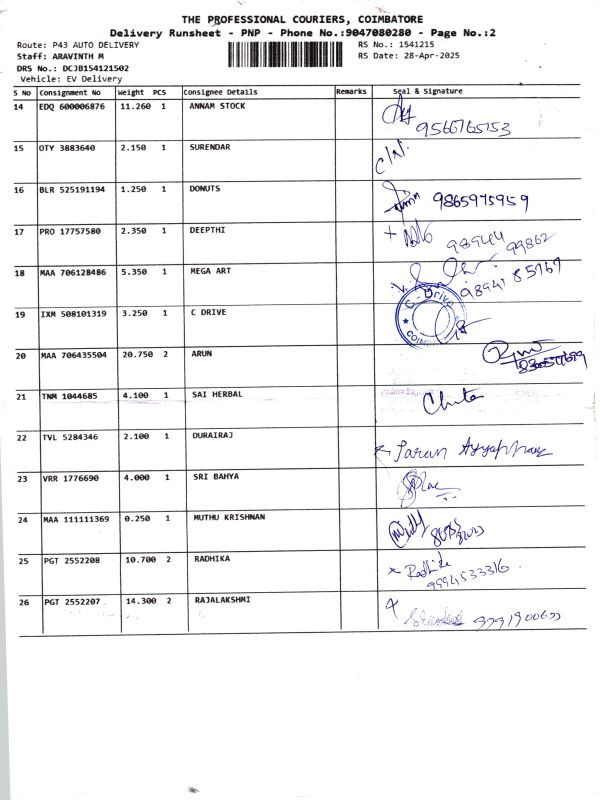 THE PROFESSIONAL COURIERS, COIMBATORE
Delivery Runsheet - PNP - Phone No.:9047080280 - Page No.:2
Route: P43 AUTO DELIVERY RS No.: 1541215
Staff: ARAVINTH M RS Date: 28-Apr-2025
DRS No.: DCJB154121502
Vehicle: EV Delivery
S No Consignment No Weight PCS Consignee Details Remarks Seal & Signature
14 EDQ 600006876 11.260 1 ANNAM STOCK
9566765153
15 OTY 3883640 2.150 1 SURENDAR
16 BLR 525191194 1.250 1 DONUTS 9865975959
17 PRO 17757580 2.350 1 DEEPTHI 98944 99862
18 MAA 706128486 5.350 1 MEGA ART 98941 85767
19 IXM 508101319 3.250 1 C DRIVE C-Drive
20 MAA 706435504 20.750 2 ARUN
21 TNM 1044685 4.100 1 SAI HERBAL
22 TVL 5284346 2.100 1 DURAIRAJ
23 VRR 1776690 4.000 1 SRI BAHYA
24 MAA 111111369 0.250 1 MUTHU KRISHNAN
25 PGT 2552208 10.700 2 RADHIKA Radhika
9994533316
26 PGT 2552207 14.300 2 RAJALAKSHMI